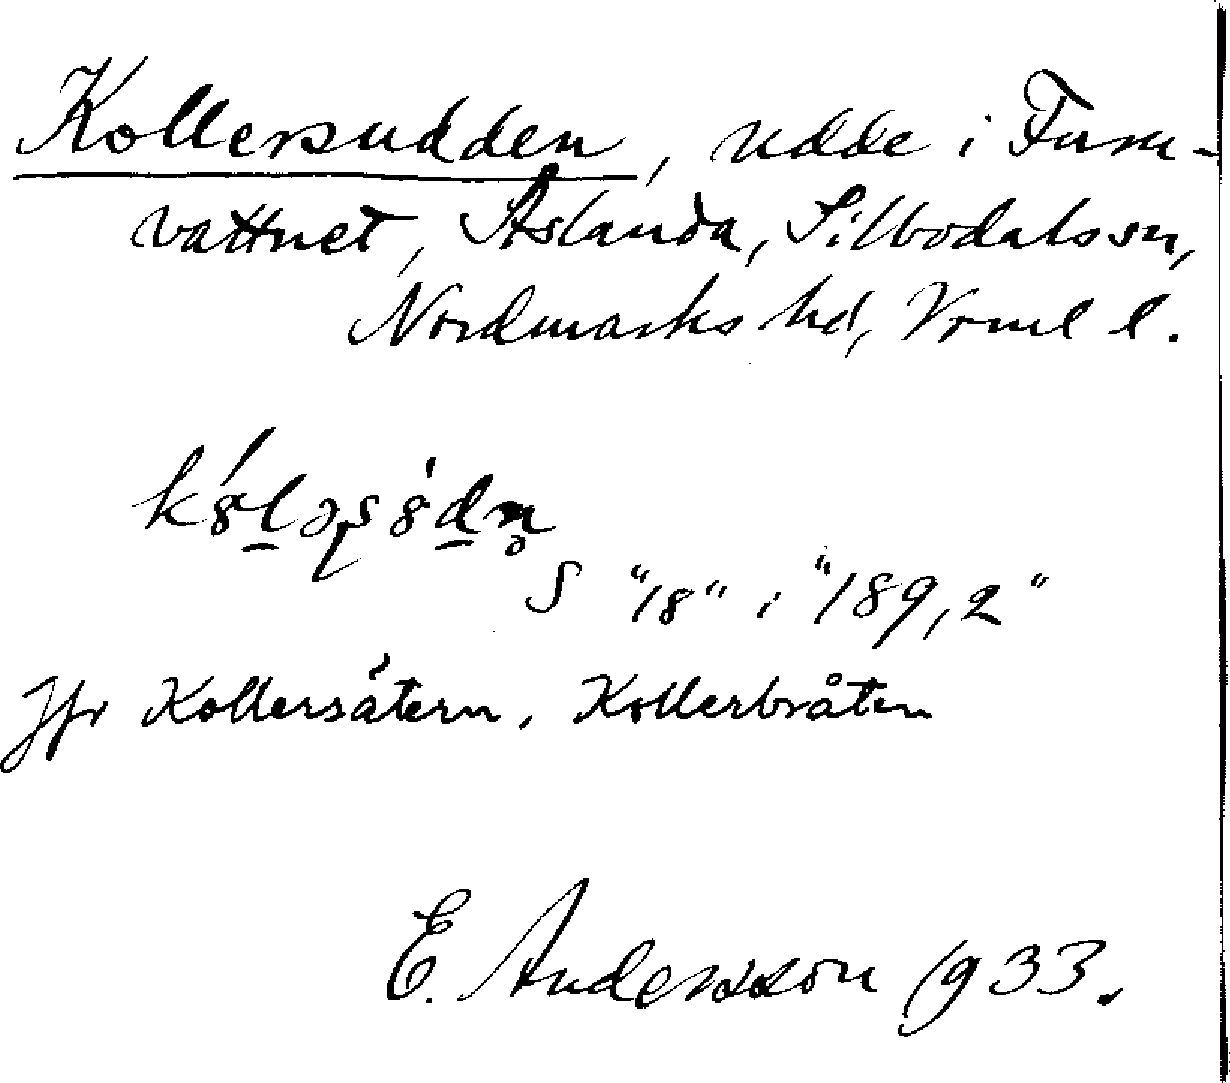 Kollersudden, udde i Furu-
vattnet, Åslanda, Silbodals sn,
Nordmarks hd, Vrml l.
kó̤l̠əʂò̤d̠n̥
S "18" i "189,2"
Jfr Kollersätern, Kollerbråten
E. Andersson 1933.